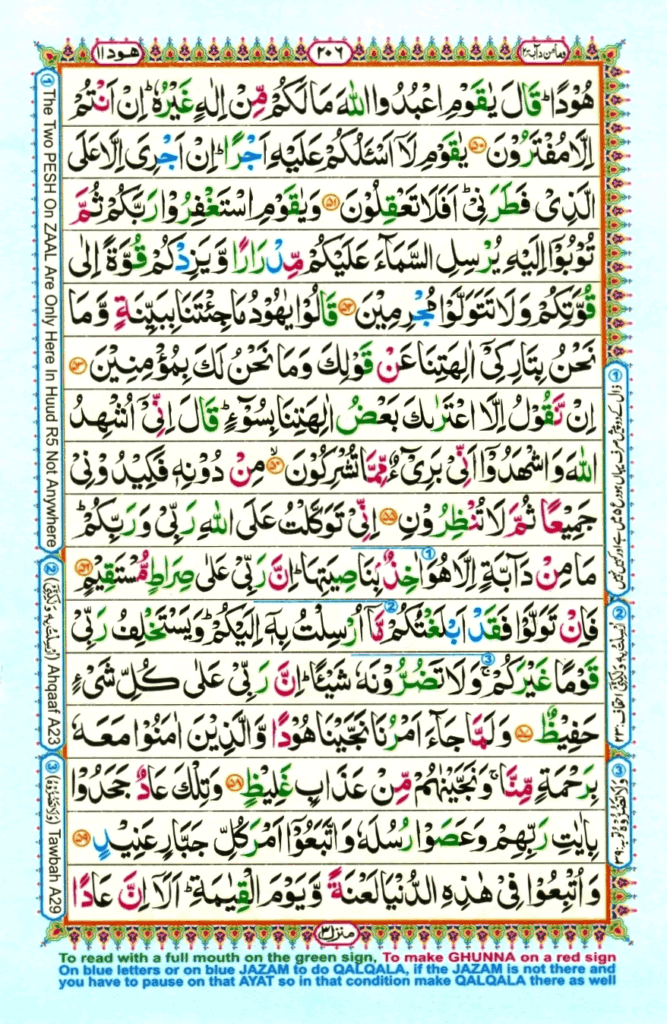 وما من دآبة ۱۲
۲۰۶
هود ۱۱
هُوْدًا ؕ قَالَ یٰقَوْمِ اعْبُدُوا اللّٰهَ مَا لَكُمْ مِّنْ اِلٰهٍ غَیْرُهٗ ؕ اِنْ اَنْتُمْ
اِلَّا مُفْتَرُوْنَ ﴿۵۰﴾ یٰقَوْمِ لَاۤ اَسْئَلُكُمْ عَلَیْهِ اَجْرًا ؕ اِنْ اَجْرِیَ اِلَّا عَلَی
الَّذِیْ فَطَرَنِیْ ؕ اَفَلَا تَعْقِلُوْنَ ﴿۵۱﴾ وَ یٰقَوْمِ اسْتَغْفِرُوْا رَبَّكُمْ ثُمَّ
تُوْبُوْۤا اِلَیْهِ یُرْسِلِ السَّمَآءَ عَلَیْكُمْ مِّدْرَارًا وَّ یَزِدْكُمْ قُوَّةً اِلٰی
قُوَّتِكُمْ وَ لَا تَتَوَلَّوْا مُجْرِمِیْنَ ﴿۵۲﴾ قَالُوْا یٰهُوْدُ مَا جِئْتَنَا بِبَیِّنَةٍ وَّ مَا
نَحْنُ بِتَارِكِیْۤ اٰلِهَتِنَا عَنْ قَوْلِكَ وَ مَا نَحْنُ لَكَ بِمُؤْمِنِیْنَ ﴿۵۳﴾
اِنْ نَّقُوْلُ اِلَّا اعْتَرٰىكَ بَعْضُ اٰلِهَتِنَا بِسُوْٓءٍ ؕ قَالَ اِنِّیْۤ اُشْهِدُ
اللّٰهَ وَ اشْهَدُوْۤا اَنِّیْ بَرِیْٓءٌ مِّمَّا تُشْرِكُوْنَ ﴿۵۴﴾ۙ مِنْ دُوْنِهٖ فَكِیْدُوْنِیْ
جَمِیْعًا ثُمَّ لَا تُنْظِرُوْنِ ﴿۵۵﴾ اِنِّیْ تَوَكَّلْتُ عَلَی اللّٰهِ رَبِّیْ وَ رَبِّكُمْ ؕ
مَا مِنْ دَآبَّةٍ اِلَّا هُوَ اٰخِذٌۢ بِنَاصِیَتِهَا ؕ اِنَّ رَبِّیْ عَلٰی صِرَاطٍ مُّسْتَقِیْمٍ ﴿۵۶﴾
فَاِنْ تَوَلَّوْا فَقَدْ اَبْلَغْتُكُمْ مَّاۤ اُرْسِلْتُ بِهٖۤ اِلَیْكُمْ ؕ وَ یَسْتَخْلِفُ رَبِّیْ
قَوْمًا غَیْرَكُمْ ۚ وَ لَا تَضُرُّوْنَهٗ شَیْئًا ؕ اِنَّ رَبِّیْ عَلٰی كُلِّ شَیْءٍ
حَفِیْظٌ ﴿۵۷﴾ وَ لَمَّا جَآءَ اَمْرُنَا نَجَّیْنَا هُوْدًا وَّ الَّذِیْنَ اٰمَنُوْا مَعَهٗ
بِرَحْمَةٍ مِّنَّا ۚ وَ نَجَّیْنٰهُمْ مِّنْ عَذَابٍ غَلِیْظٍ ﴿۵۸﴾ وَ تِلْكَ عَادٌ ۙ جَحَدُوْا
بِاٰیٰتِ رَبِّهِمْ وَ عَصَوْا رُسُلَهٗ وَ اتَّبَعُوْۤا اَمْرَ كُلِّ جَبَّارٍ عَنِیْدٍ ﴿۵۹﴾
وَ اُتْبِعُوْا فِیْ هٰذِهِ الدُّنْیَا لَعْنَةً وَّ یَوْمَ الْقِیٰمَةِ ؕ اَلَاۤ اِنَّ عَادًا
منزل ۳
① The Two PESH On ZAAL Are Only Here In Huud R5 Not Anywhere
② (اُرْسِلْتُ بِهٖ وَ لٰكِنِّیْ) Ahqaaf A23
③ (وَ لَا تَضُرُّوْهُ) Tawbah A29
① ذال کے دو پیش صرف یہاں ہود ع۵ میں ہے اور کہیں نہیں
② اُرْسِلْتُ بِهٖ وَ لٰكِنِّیْ احقاف:۲۳
③ وَ لَا تَضُرُّوْهُ توبہ:۳۹
To read with a full mouth on the green sign, To make GHUNNA on a red sign
On blue letters or on blue JAZAM to do QALQALA, if the JAZAM is not there and
you have to pause on that AYAT so in that condition make QALQALA there as well